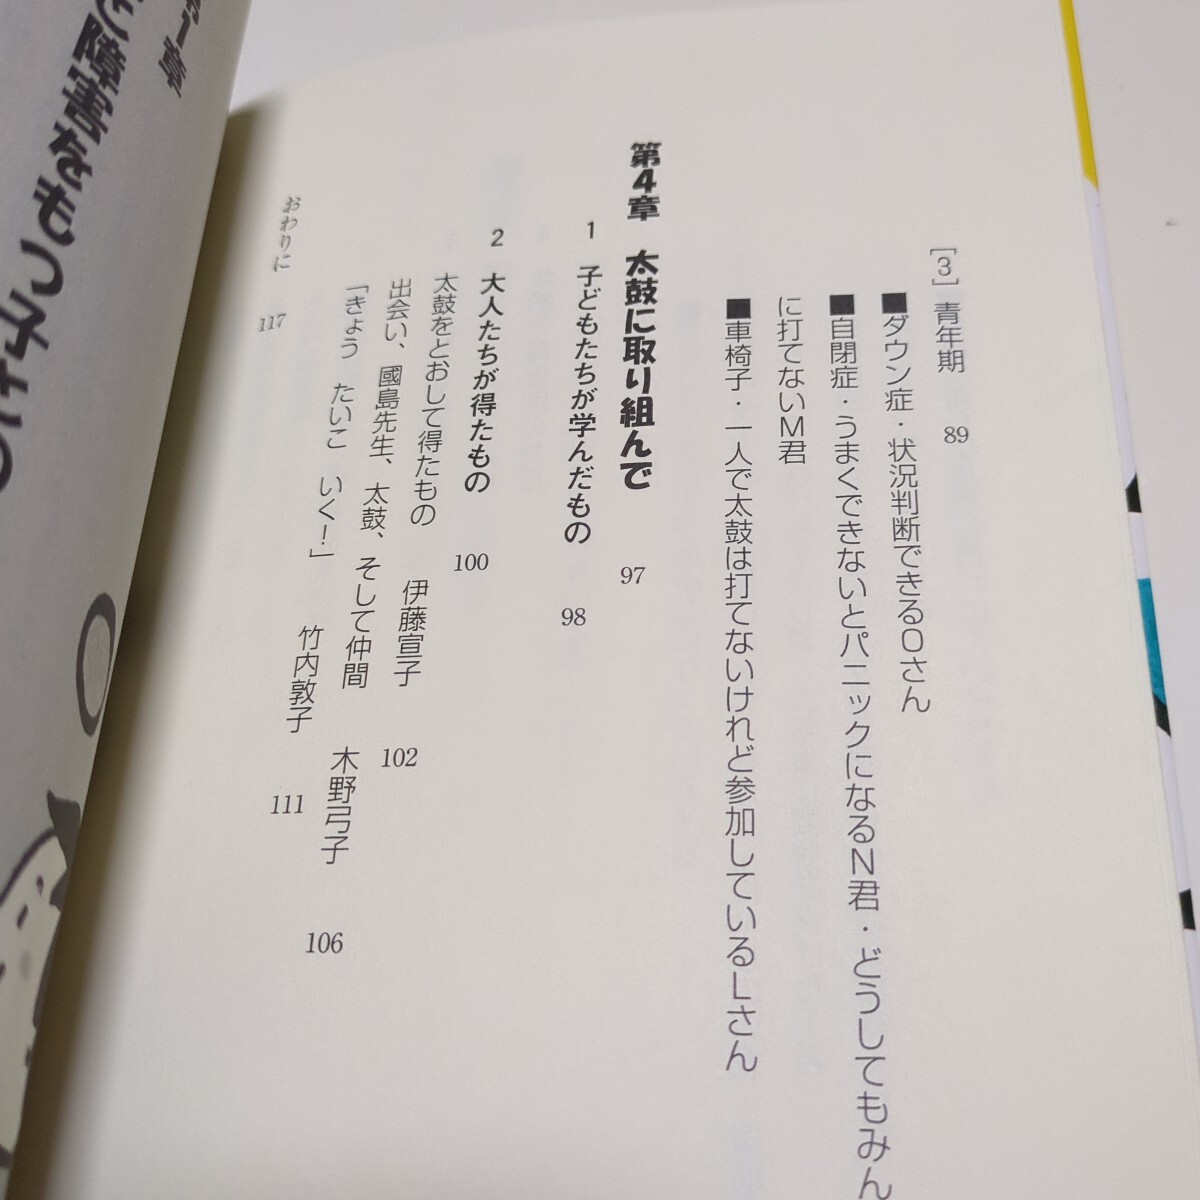 [3] 青年期 89
■ダウン症・状況判断できるOさん
■自閉症・うまくできないとパニックになるN君・どうしてもみん
に打てないM君
■車椅子・一人で太鼓は打てないけれど参加しているLさん
第4章 太鼓に取り組んで 97
1 子どもたちが学んだもの 98
2 大人たちが得たもの 100
太鼓をとおして得たもの 伊藤宣子 102
出会い、國島先生、太鼓、そして仲間 木野弓子 106
「きょう たいこ いく!」 竹内敦子 111
おわりに 117
章
障害をもつ子